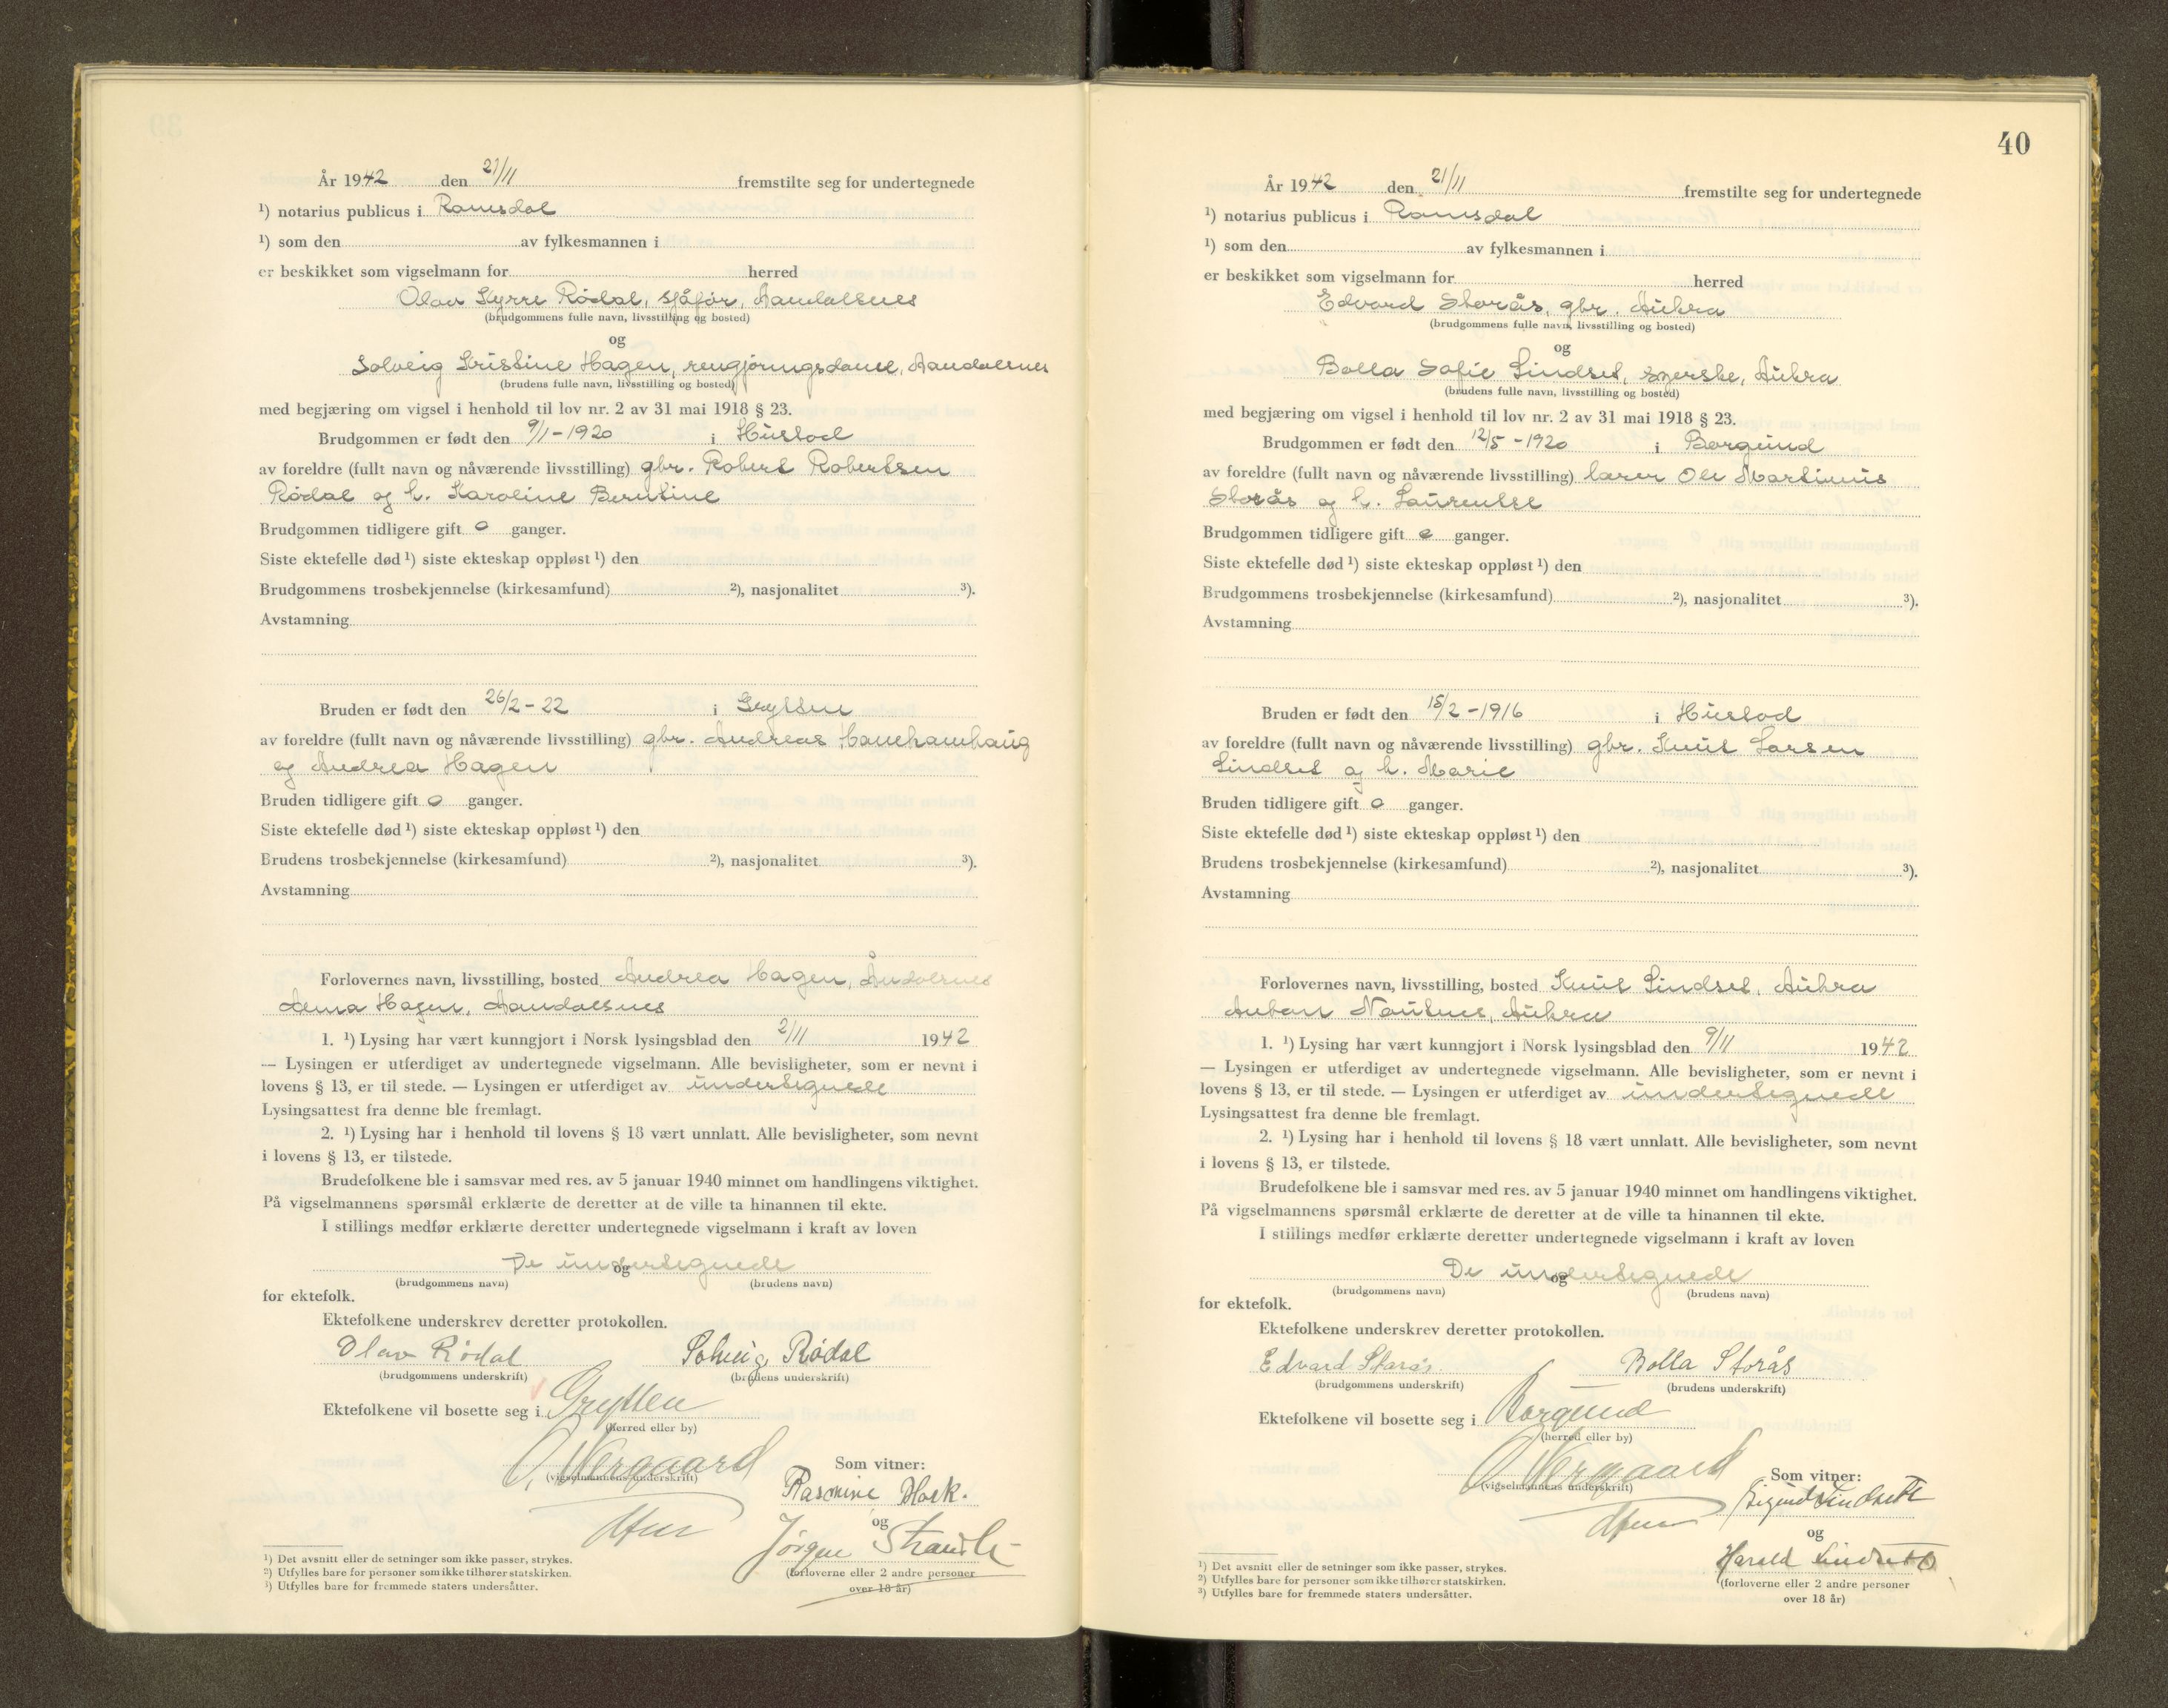 År 1942 den 21/11 fremstilte seg for undertegnede
¹) notarius publicus i Romsdal
¹) som den av fylkesmannen i
er beskikket som vigselmann for herred
Olav Kyrre Rødal, sjåfør, Aandalsnes
(brudgommens fulle navn, livsstilling og bosted)
og
Solveig Kristine Hagen, rengjøringsdame, Aandalsnes
(brudens fulle navn, livsstilling og bosted)
med begjæring om vigsel i henhold til lov nr. 2 av 31 mai 1918 § 23.
Brudgommen er født den 9/1-1920 i Hustad
av foreldre (fullt navn og nåværende livsstilling) gbr. Robert Robertsen
Rødal og h. Karoline Berntine
Brudgommen tidligere gift 0 ganger.
Siste ektefelle død ¹) siste ekteskap oppløst ¹) den
Brudgommens trosbekjennelse (kirkesamfund) ²), nasjonalitet ³).
Avstamning
Bruden er født den 26/2-22 i Grytten
av foreldre (fullt navn og nåværende livsstilling) gbr. Andreas
og Andrea Hagen
Bruden tidligere gift 0 ganger.
Siste ektefelle død ¹) siste ekteskap oppløst ¹) den
Brudens trosbekjennelse (kirkesamfund) ²), nasjonalitet ³).
Avstamning
Forlovernes navn, livsstilling, bosted Andrea Hagen, Åndalsnes
Anna Hagen, Aandalsnes
1. ¹) Lysing har vært kunngjort i Norsk lysingsblad den 2/11 1942
— Lysingen er utferdiget av undertegnede vigselmann. Alle bevisligheter, som er nevnt i
lovens § 13, er til stede. — Lysingen er utferdiget av undertegnede
Lysingsattest fra denne ble fremlagt.
2. ¹) Lysing har i henhold til lovens § 18 vært unnlatt. Alle bevisligheter, som nevnt
i lovens § 13, er tilstede.
Brudefolkene ble i samsvar med res. av 5 januar 1940 minnet om handlingens viktighet.
På vigselmannens spørsmål erklærte de deretter at de ville ta hinannen til ekte.
I stillings medfør erklærte deretter undertegnede vigselmann i kraft av loven
De undertegnede
og
(brudgommens navn) (brudens navn)
for ektefolk.
Ektefolkene underskrev deretter protokollen.
Olav Rødal Solveig Rødal
(brudgommens underskrift) (brudens underskrift)
Ektefolkene vil bosette seg i Grytten
(herred eller by)
O. Wergaard
(vigselmannens underskrift)
Som vitner:
Rasmine Hoek.
og
Jørgen
(forloverne eller 2 andre personer
over 18 år)
¹) Det avsnitt eller de setninger som ikke passer, strykes.
²) Utfylles bare for personer som ikke tilhører statskirken.
³) Utfylles bare for fremmede staters undersåtter.
40
År 1942 den 21/11 fremstilte seg for undertegnede
¹) notarius publicus i Romsdal
¹) som den av fylkesmannen i
er beskikket som vigselmann for herred
Edvard Storås, gbr. Aukra
(brudgommens fulle navn, livsstilling og bosted)
og
Bolla Sofie Lindset, syerske, Aukra
(brudens fulle navn, livsstilling og bosted)
med begjæring om vigsel i henhold til lov nr. 2 av 31 mai 1918 § 23.
Brudgommen er født den 12/5-1920 i Borgund
av foreldre (fullt navn og nåværende livsstilling) lærer Ole Martinius
Storås og h. Laurentse
Brudgommen tidligere gift 0 ganger.
Siste ektefelle død ¹) siste ekteskap oppløst ¹) den
Brudgommens trosbekjennelse (kirkesamfund) ²), nasjonalitet ³).
Avstamning
Bruden er født den 15/2-1916 i Hustad
av foreldre (fullt navn og nåværende livsstilling) gbr. Knut Larsen
Lindset og h. Marie
Bruden tidligere gift 0 ganger.
Siste ektefelle død ¹) siste ekteskap oppløst ¹) den
Brudens trosbekjennelse (kirkesamfund) ²), nasjonalitet ³).
Avstamning
Forlovernes navn, livsstilling, bosted Knut Lindset, Aukra
Anton Nautnes, Aukra
1. ¹) Lysing har vært kunngjort i Norsk lysingsblad den 9/11 1942
— Lysingen er utferdiget av undertegnede vigselmann. Alle bevisligheter, som er nevnt i
lovens § 13, er til stede. — Lysingen er utferdiget av undertegnede
Lysingsattest fra denne ble fremlagt.
2. ¹) Lysing har i henhold til lovens § 18 vært unnlatt. Alle bevisligheter, som nevnt
i lovens § 13, er tilstede.
Brudefolkene ble i samsvar med res. av 5 januar 1940 minnet om handlingens viktighet.
På vigselmannens spørsmål erklærte de deretter at de ville ta hinannen til ekte.
I stillings medfør erklærte deretter undertegnede vigselmann i kraft av loven
De undertegnede
og
(brudgommens navn) (brudens navn)
for ektefolk.
Ektefolkene underskrev deretter protokollen.
Edvard Storås Bolla Storås
(brudgommens underskrift) (brudens underskrift)
Ektefolkene vil bosette seg i Borgund
(herred eller by)
O. Wergaard
(vigselmannens underskrift)
Som vitner:
Sigurd Lindseth
og
Harald Lindseth
(forloverne eller 2 andre personer
over 18 år)
¹) Det avsnitt eller de setninger som ikke passer, strykes.
²) Utfylles bare for personer som ikke tilhører statskirken.
³) Utfylles bare for fremmede staters undersåtter.